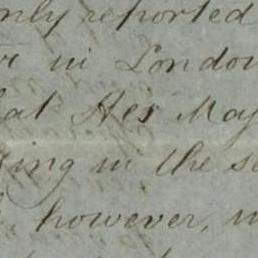 only reported
in London
that Her Maj
ing in the s
however,